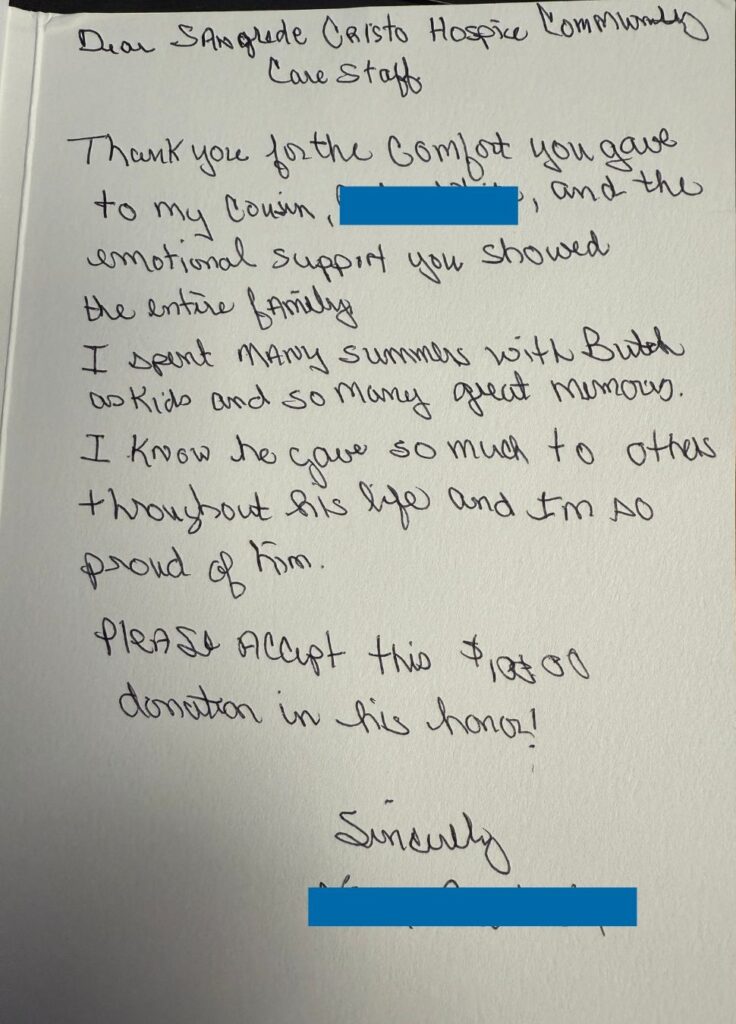 Dear SANgrede CRISTO Hospice Community
Care Staff
Thank you for the Comfort you gave
to my Cousin, , and the
emotional support you showed
the entire family
I spent MANY summers with Butch
as Kids and so many great memories.
I know he gave so much to others
throughout his life and I'm so
proud of him.
PLEASE ACCEPT this
donation in his honor!
Sincerely